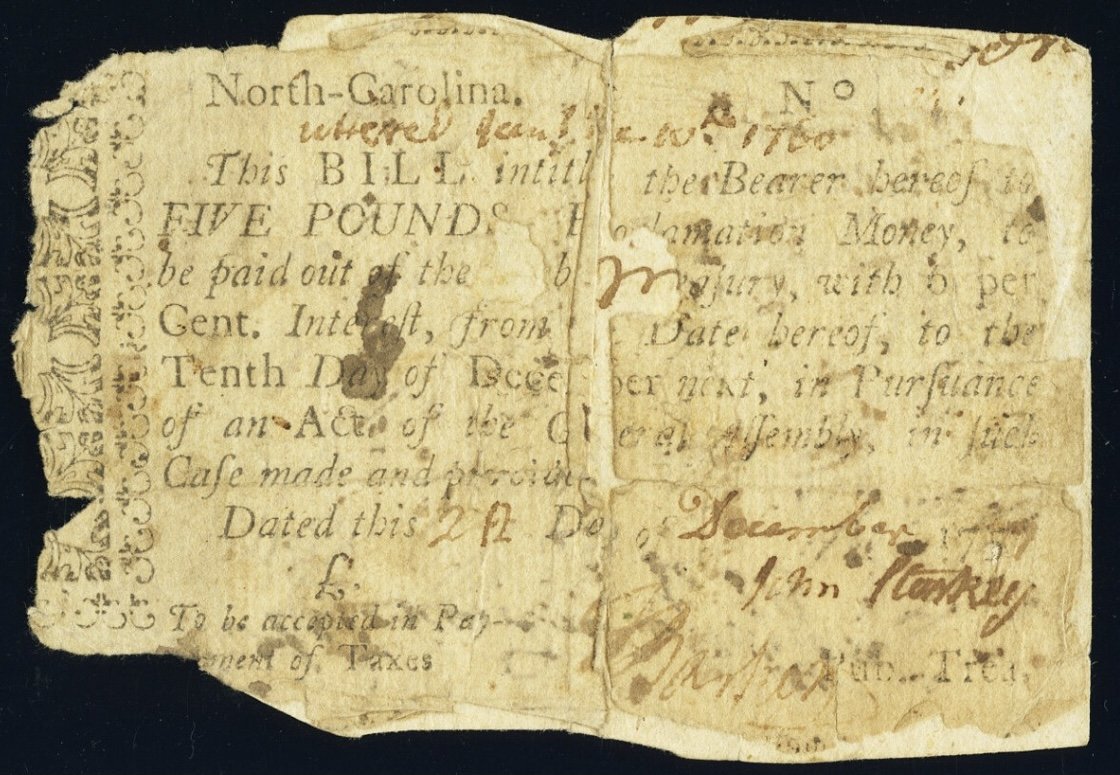 North-Carolina. No
uttered 1760
This BILL intitl the Bearer hereof to
FIVE POUNDS P oclamation Money, to
be paid out of the b easury, with 6 per
Cent. Interest, from Date hereof, to the
Tenth Day of Dece ber next, in Pursuance
of an Act of the G eral Assembly, in such
Case made and provid
Dated this 21st Da of December 17
£. John Starkey
To be accepted in Pay-
ment of Taxes Pub. Trea.